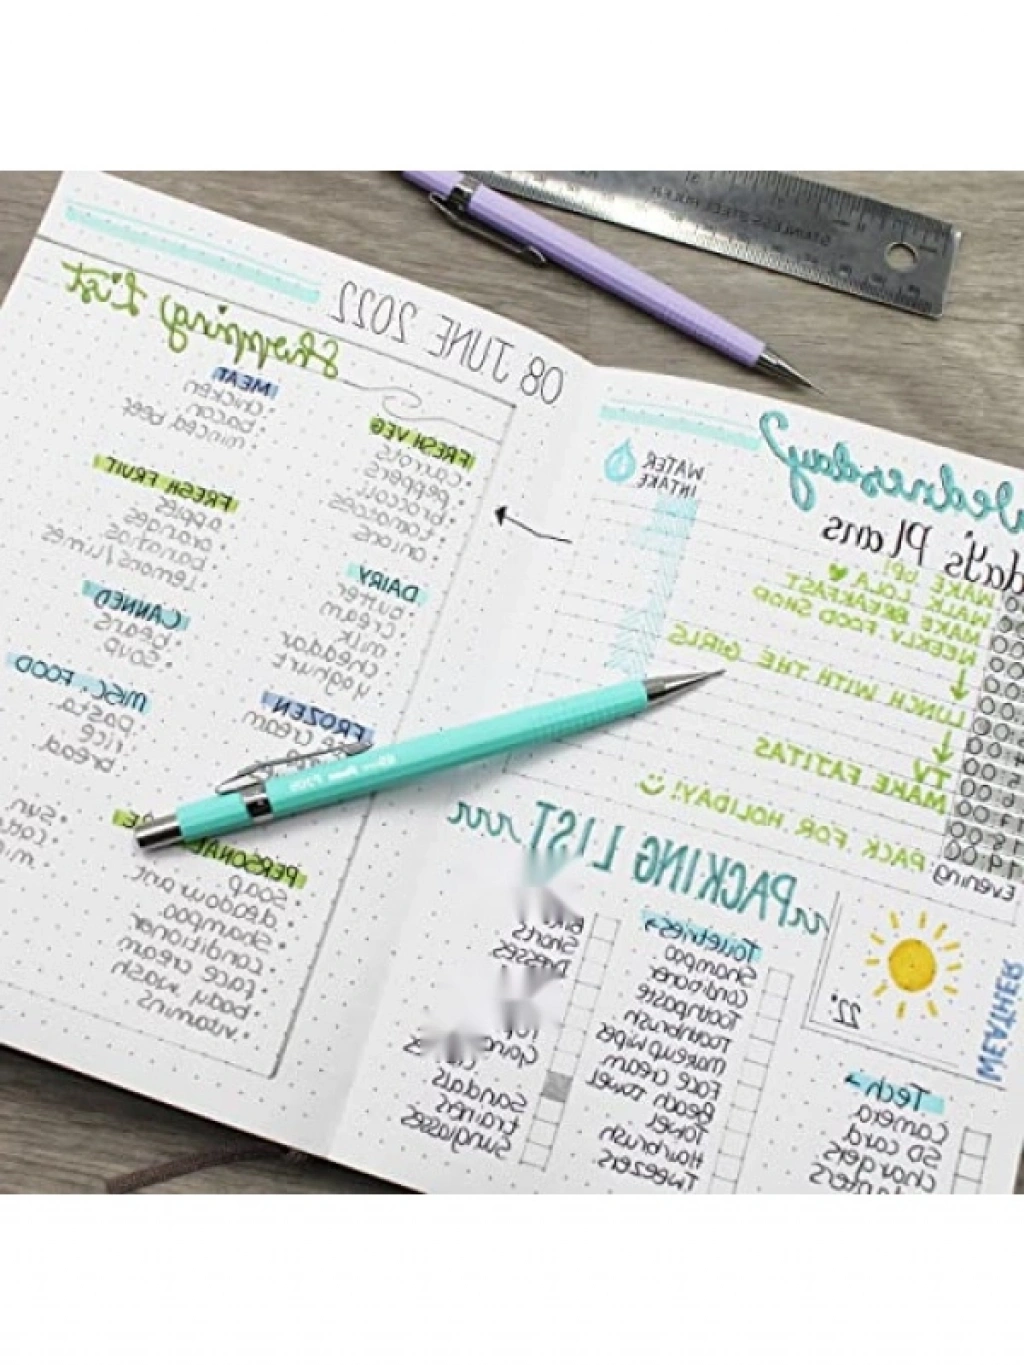 08 JUNE 2022
Shopping List
MEAT
chicken
bacon
minced beef
FRESH VEG
carrots
peppers
broccoli
tomatoes
onions
FRESH FRUIT
apples
oranges
bananas
Lemons/Limes
DAIRY
butter
cream
milk
cheddar
yoghurt
CANNED
beans
soup
MISC. FOOD
pasta
rice
bread
FROZEN
cream
PERSONAL
soap
deodourant
shampoo
conditioner
face cream
body wash
vitamins
sun
Wednesday
WATER
INTAKE
day's Plans
WAKE UP!
WALK LOLA
MAKE BREAKFAST
WEEKLY FOOD SHOP
LUNCH WITH THE GIRLS
TV
MAKE FAJITAS
PACK FOR HOLIDAY!
Evening
PACKING LIST
WEATHER
22°
Toiletries
Shampoo
Conditioner
Toothpaste
Toothbrush
Makeup wipes
Face cream
Beach towel
Towel
Hairbrush
Tweezers
Shorts
Dresses
Sandals
trainers
Sunglasses
Tech
Camera
SD card
chargers
STAINLESS STEEL RULER